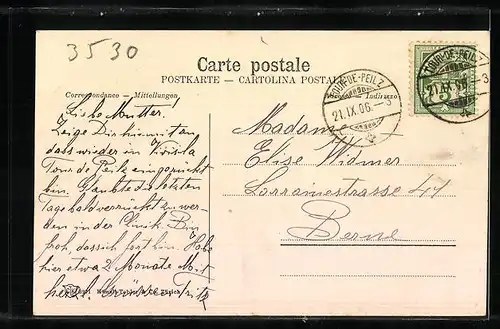 3530
Carte postale
POSTKARTE — CARTOLINA POSTALE
Correspondance — Mittellungen
Indirizzo
LA TOUR-DE-PEILZ
21.IX.06.-3
Liebe Mutter!
Zeige Dir hiemit an
dass wieder in
Tour de Peilz eingerückt
bin. Glaubte die letzten
Tage bald verrückt zu wer-
den in der Klinik. Bin
froh, dass ich fort bin. Habe
hier etwa 2 Monate. Mit
herzl. Grüssen Fritz
Madame
Elise Widmer
Lorrainestrasse 44
Berne